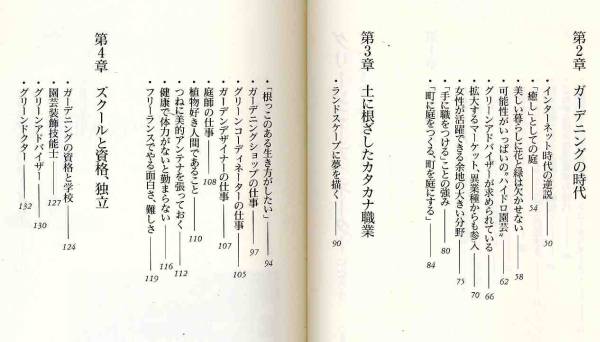 第2章 ガーデニングの時代
・インターネット時代の逆説 50
・「癒し」としての庭 54
・美しい暮らしに花と緑は欠かせない 58
・可能性がいっぱいの〝ハイドロ園芸〟 62
・グリーンアドバイザーが求められている 66
・拡大するマーケット、異業種からも参入 70
・女性が活躍できる余地の大きい分野 75
・「手に職をつける」ことの強み 80
・「町に庭をつくる、町を庭にする」 84
第3章 土に根ざしたカタカナ職業
・ランドスケープに夢を描く 90
・「根っこのある生き方がしたい」 94
・ガーデニングショップの仕事 97
・グリーンコーディネーターの仕事 105
・ガーデンデザイナーの仕事 107
・庭師の仕事 108
・植物好き人間であること 110
・つねに美的アンテナを張っておく 112
・健康で体力がないと勤まらない 116
・フリーランスでやる面白さ、難しさ 119
第4章 スクールと資格、独立
・ガーデニングの資格と学校 124
・園芸装飾技能士 127
・グリーンアドバイザー 130
・グリーンドクター 132